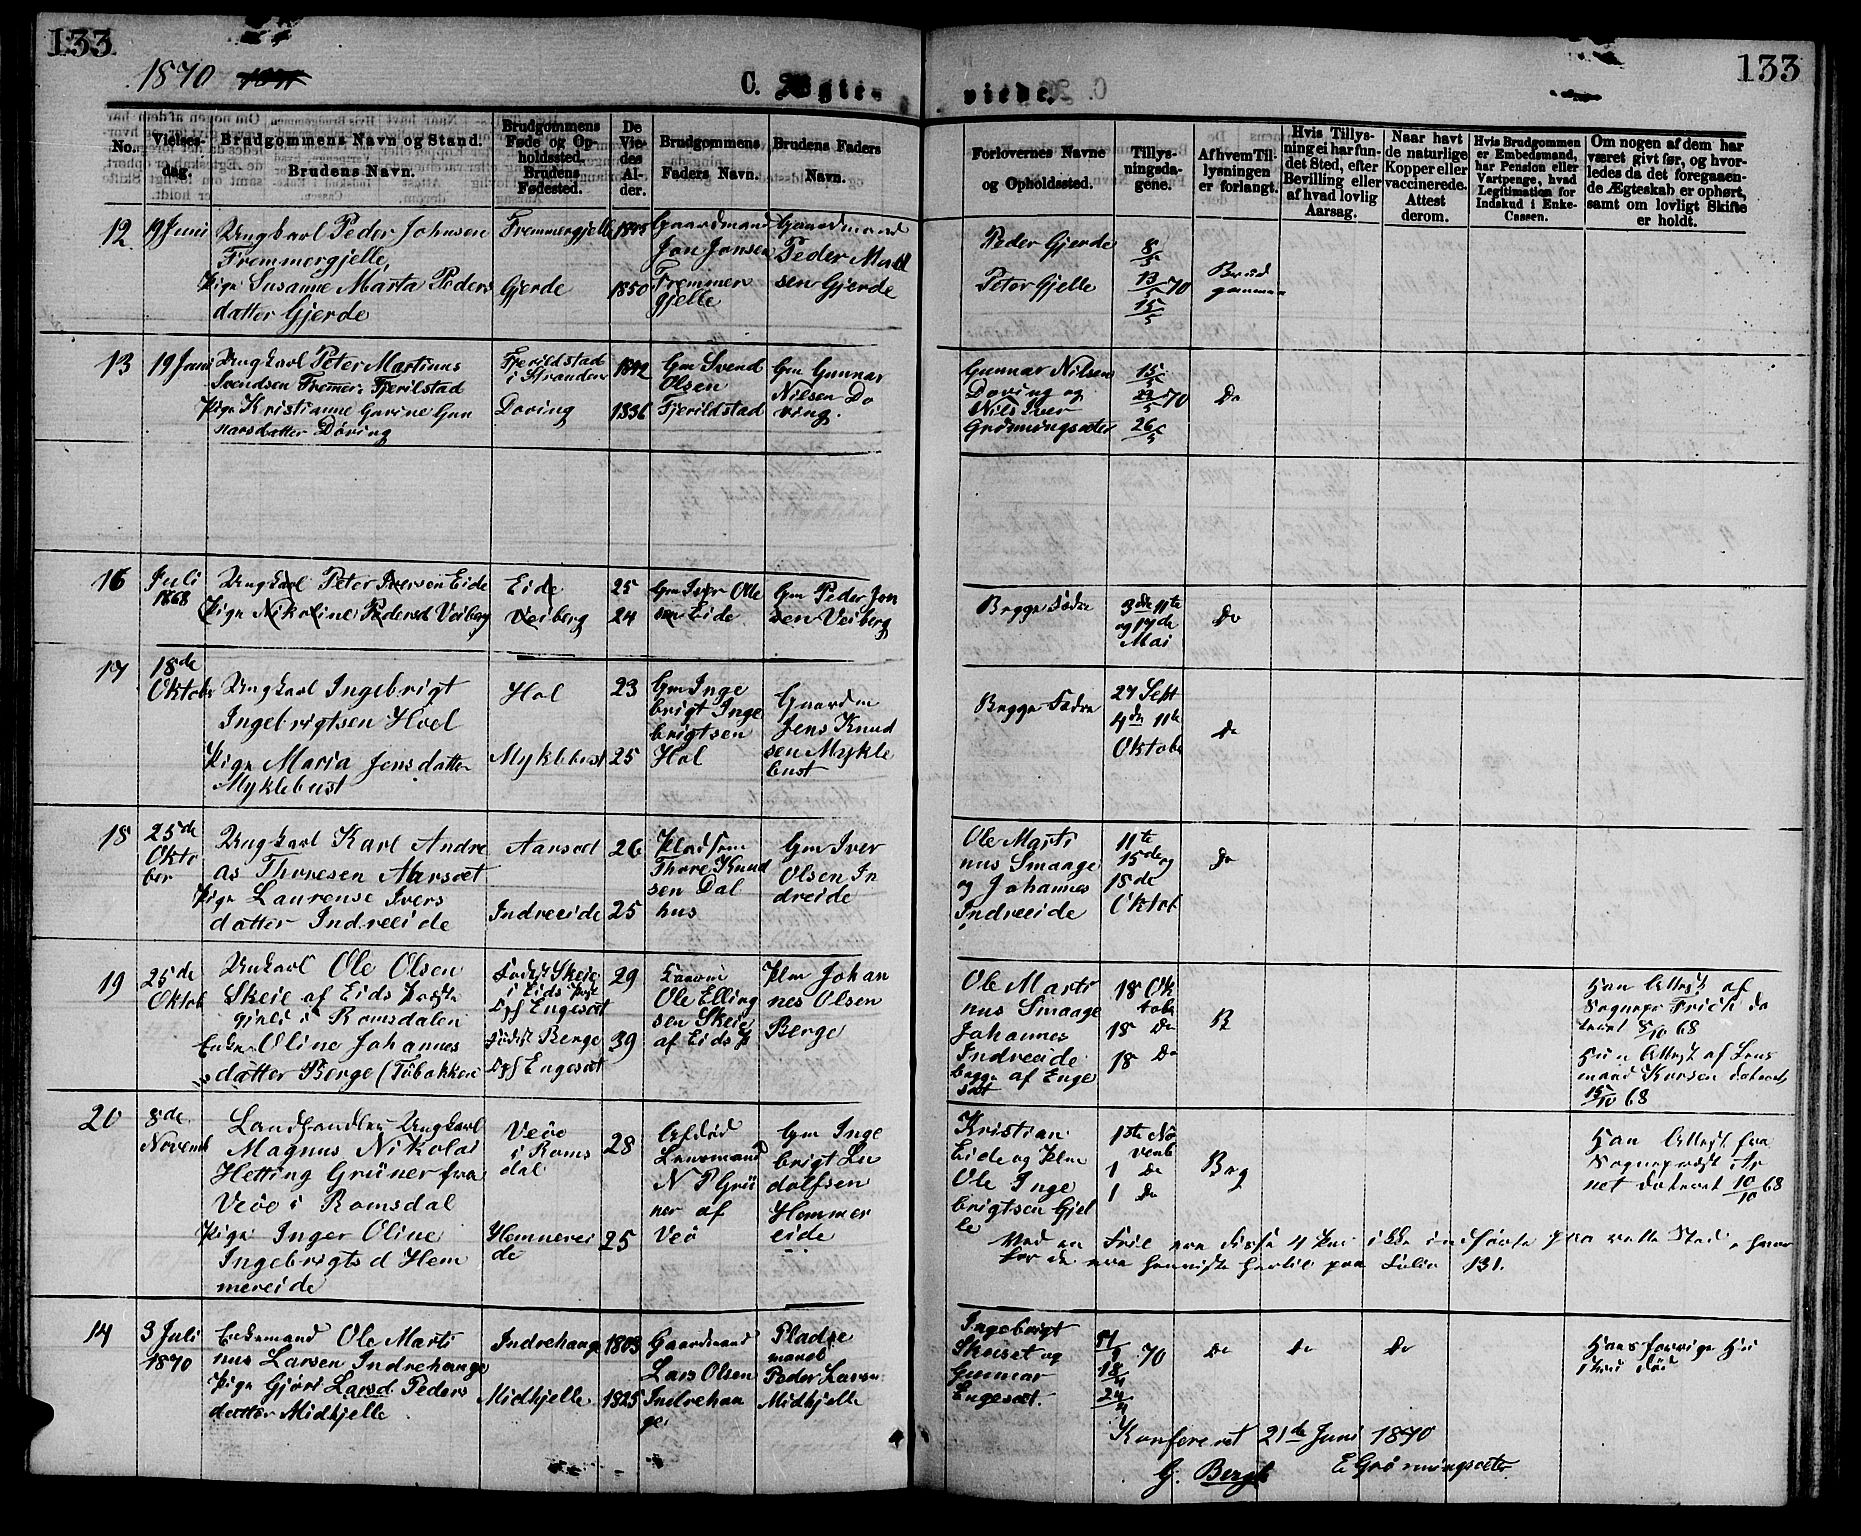 133
133
1870
C. Ægte-
viede.
No.
Vielses-
dag.
Brudgommens Navn og Stand.
Brudens Navn.
Brudgommens
Føde og Op-
holdssted.
Brudens
Fødested.
De
Vie-
des
Al-
der.
Brudgommens
Faders Navn.
Brudens Faders
Navn.
Forlovernes Navne
og Opholdssted.
Tillys-
ningsda-
gene.
Af hvem Til-
lysningen
er forlangt.
Hvis Tillys-
ning ei har fun-
det Sted, efter
Bevilling eller
af hvad lovlig
Aarsag.
Naar havt
de naturlige
Kopper eller
vaccinerede.
Attest
derom.
Hvis Brudgommen
er Embedsmand,
har Pension eller
Vartpenge, hvad
Legitimation for
Indskud i Enke-
Cassen.
Om nogen af dem har
været givt før, og hvor-
ledes da det foregaaen-
de Ægteskab er ophørt,
samt om lovligt Skifte
er holdt.
12
19 Juni
Ungkarl Peder Johnsen
Fremmergjelle,
Pige Susanne Marta Peders
datter Gjerde
Fremmergjelle
Gjerde
1845
1850
Gaardmand
Jon Jonsen
Fremmer
gjelle
Gaardmand
Peder Mad
sen Gjerde
Peder Gjerde
Peter Gjelle
8/5
13/5 70
15/5
Brud
gommen
13
19 Juni
Ungkarl Peter Martinus
Svendsen Fremer. Fjerilstad
Pige Kristianne Gurine Gun
narsdatter Døving
Fjerildstad
i Stranden
Døving
1842
1836
Gm Svend
Olsen
Fjerildstad
Gm Gunnar
Nilsen Dø
ving.
Gunnar Nilsen
Døving og
Nils Iver
Grønningsæter
15/5
22/5 70
26/5
Do
16
Juli
1868
Ungkarl Peter Iversen Eide
Pige Nikoline Pedersd Veiberg
Eide
Veiberg
25
24
Gm Iver Ole
sen Eide
Gm Peder Jon
sen Veiberg
Begge Fædre
3de 11te
og 17de
Mai
Do
17
18de
Oktobr
Ungkarl Ingebrigt
Ingebrigtsen Hoel
Pige Maria Jensdatter
Myklebust
Hol
Myklebust
23
25
Gm Inge
brigt Inge
brigtsen
Hol
Gaardm
Jens Knud
sen Mykle
bust
Begge Fædre
27 Sept
4de 11te
Oktobr
Do
18
25de
Okto
ber
Ungkarl Karl Andre
as Thoresen Aarsæt
Pige Laurense Ivers
datter Indreeide
Aarsæt
Indreeide
26
25
Pladsm
Thore Knud
sen Dal
hus
Gm Iver
Olsen In
dreide
Ole Marti
nus Smaage
og Johannes
Indreeide
11te
15de og
18de
Oktob
Do
19
25de
Oktob
Unkarl Ole Olsen
Skeie af Eids Præste
gjeld i Romsdalen
Enke Oline Johannes
datter Berge (Tobakken
Født Skeie
i Eids
Engesæt
Født Berge
Engesæt
29
39
Ole Elling
sen Skeie
af Eids P
Plm Johan
nes Olsen
Berge
Ole Marti
nus Smaage
Johannes
Indreeide
begge af Enge
sæt
18 Ok
tober
18 Do
18 Do
B
Han Attest af
Sognepr Frich da
teret 8/10 68
Hun Attest af Lens
mand Korsen dateret
15/10 68
20
8de
Novemb
Landhandler Ungkarl
Magnus Nikolai
Hetting Grüner fra
Veøe i Romsdal
Pige Inger Oline
Ingebrigtsd Hem
mereide
Veøe
i Roms
dal
Hemmerei
de
28
25
Afdød
Lensmand
N P Grü
ner af
Veø
Gm Inge
brigt Lu
dolfsen
Hemmer
eide
Kristian
Eide og Plm
Ole Inge
brigtsen Gjel
le
1ste No
vemb
1 Do
1 Do
Brg
Han Attest fra
Sogneprest Ar
net dateret 10/10 68
Ved en Feil ere disse 4 Par ikke indførte paa rette Sted, hvor
for de ere henviste hertil paa Folio 131.
14
3 Juli
1870
Enkemand Ole Marti
nus Larsen Indrehauge
Pige Gjøri Larsd Peders
datter Midtjelle
Indrehauge
Midtjelle
1803
1825
Gaardmand
Lars Olsen
Indrehau
ge
Pladse
mand
Peder Larsen
Midtjelle
Ingebrigt
Skeiset og
Gunnar
Engesæt.
70
18/4
24/4
Do
Do
Do
Hans forrige Hu
stru død
Konfereret 21de Juni 1870
G. Bergh
E Grønningsæter